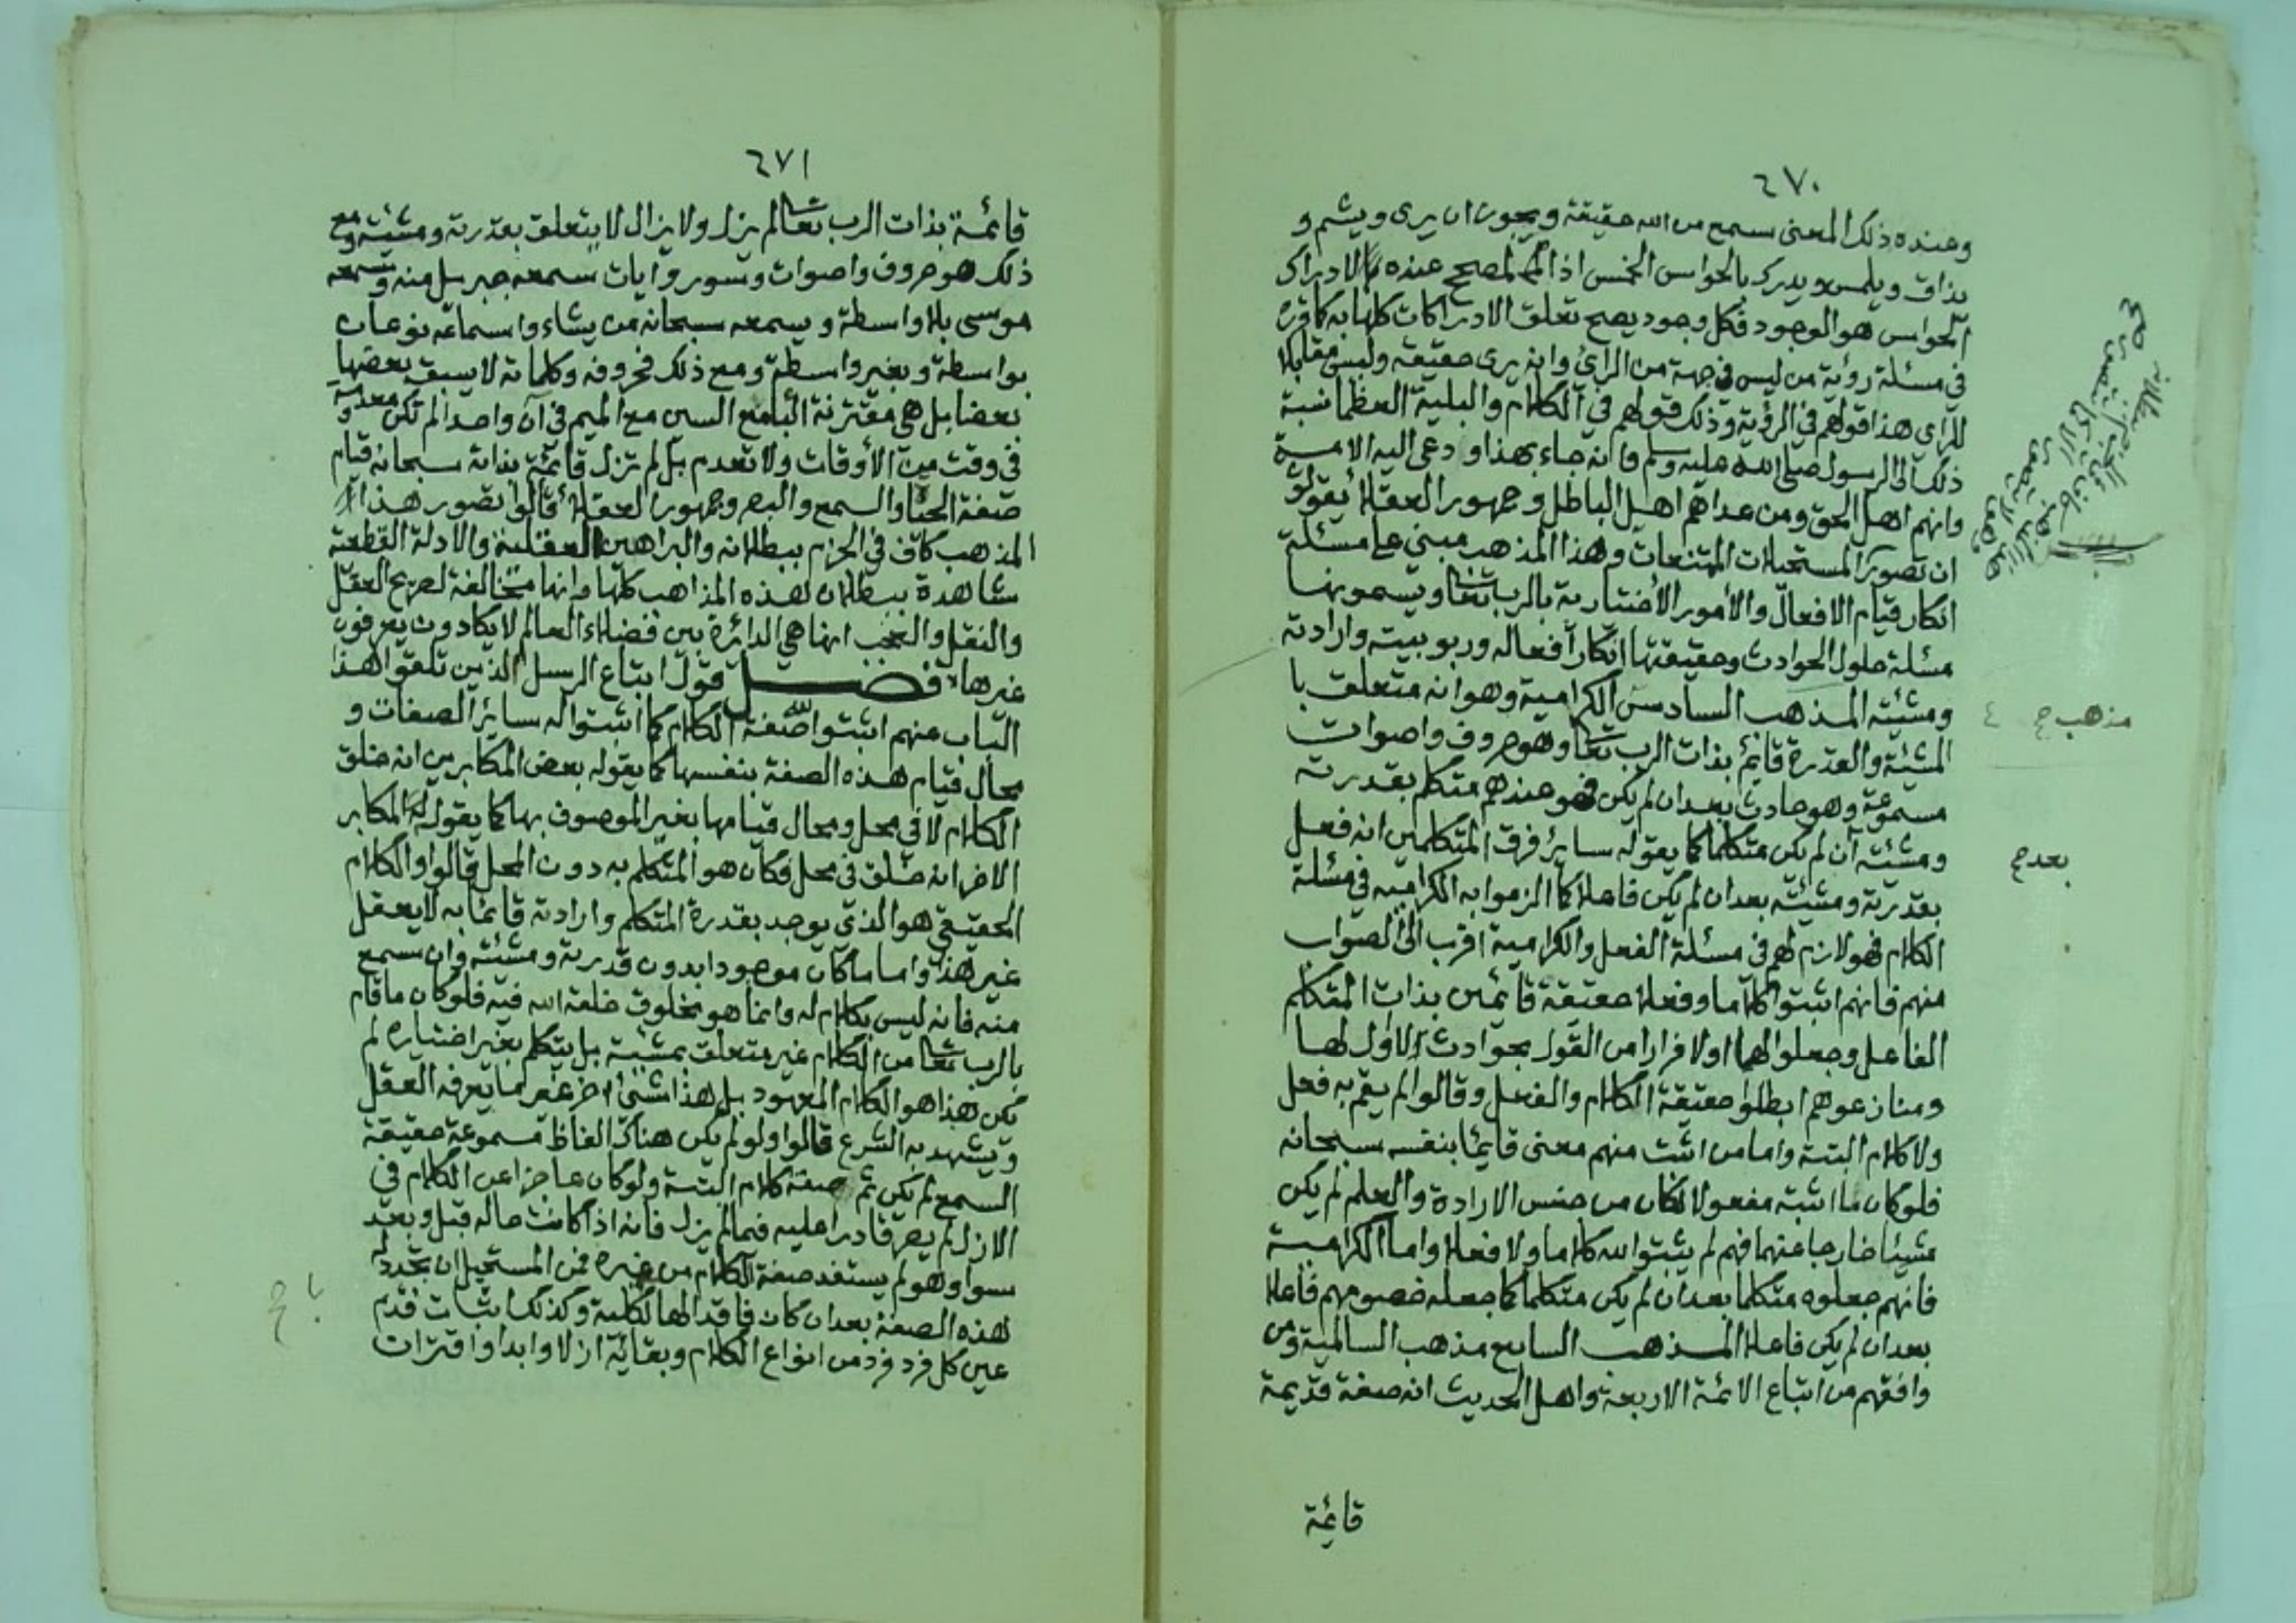 ٦٧٠
وعنده ذلك المعنى سمع من الله حقيقة ويجوز ان يرى ويشم و
يذاق ويلمس ويدرك بالحواس الخمس اذ المصحح عنده بالادراك
الحواس هو الوجود فكل وجود يصح تعلق الادراكات كلها به كما قرره
في مسئلة رؤية من ليس في جهة من الرائ وانه يرى حقيقة وليس مقابلا
للراي هذا قولهم في الرؤية وذلك قولهم في الكلام والبلية العظما نسبة
ذلك الى الرسول صلى الله عليه وسلم وانه جاء بهذا ودعى اليه الامة
وانهم اهل الحق ومن عداهم اهل الباطل وجمهور العقلاء يقولون
ان تصور المستحيلات الممتنعات وهذا المذهب مبني على مسئلة
انكار قيام الافعال والأمور الأختيارية بالرب تعا ويسمونها
مسئلة حلول الحوادث وحقيقتها انكار افعاله وربوبيته وارادته
ومشيئته المذهب السادس الكرامية وهو انه متعلق با
المشيئة والقدرة قائم بذات الرب تعا وهو حروف واصوات
مسموعة وهو حادث بعد ان لم يكن فهو عندهم متكلم بقدرته
ومشيئته آن لم يكن متكلما كما يقوله سائر فرق المتكلمين انه فعل
بقدرته ومشيئته بعد ان لم يكن فاعلا كما الزموا به الكرامية في مسئلة
الكلام فهو لازم لهم في مسئلة الفعل والكرامية اقرب الى الصواب
منهم فانهم اثبتوا كلاما وفعلا حقيقة قائمين بذات المتكلم
الفاعل وجعلوا لهما اولا فرارا من القول بحوادث لا اول لها
ومنازعوهم ابطلوا حقيقة الكلام والفعل وقالوا لم يقم به فعل
ولا كلام البتة واما من اثبت منهم معنى قائما بنفسه سبحانه
فلو كان ما اثبته مفعولا لكان من جنس الارادة والعلم لم يكن
شيئا خارجا عنهما فهم لم يثبتوا لله كلاما ولا فعلا واما الكرامية
فانهم جعلوه متكلما بعد ان لم يكن متكلما كما جعله خصومهم فاعلا
بعد ان لم يكن فاعلا المذهب السابع مذهب السالمية ومن
وافقهم من اتباع الائمة الاربعة واهل الحديث انه صفة قديمة
قائمة
مذهب ح ٤
بعد ح
٦٧١
قائمة بذات الرب تعالم يزل ولا يزال لا يتعلق بقدرته ومشيئته ومع
ذلك هو حروف واصوات وسور وايات سمعه جبريل منه وسمعه
موسى بلا واسطة ويسمعه سبحانه من يشاء واسماعه نوعان
بواسطة وبغير واسطة ومع ذلك فحروفه وكلماته لا يسبق بعضها
بعضا بل هي مقترنة البا مع السين مع الميم في آن واحد لم تكن معدومة
في وقت من الأوقات ولا تعدم بل لم تزل قائمة بذاته سبحانه قيام
صفة الحيا والسمع والبصر وجمهور العقلاء قالوا تصور هذا
المذهب كاف في الجزم ببطلانه والبراهين العقلية والادلة القطعية
شاهدة ببطلان هذه المذاهب كلها وانها مخالفة لصريح العقل
والنقل والعجب انها هي الدائرة بين فضلاء العالم لا يكادون يعرفون
غيرها فصل قول اتباع الرسل الذين تلقوا هذا
الباب عنهم اثبتوا لله صفة الكلام كما اثبتوا له سائر الصفات و
محال قيام هذه الصفة بنفسها كما يقوله بعض المكابرين انه خلق
الكلام لا في محل ومحال قيامها بغير الموصوف بها كما يقوله المكابر
الاخر انه خلق في محل فكان هو المتكلم به دون المحل قالوا والكلام
الحقيقي هو الذي يوجد بقدرة المتكلم وارادته قائما به لا يعقل
غير هذا واما ما كان موجودا بدون قدرته ومشيئته وان سمع
منه فانه ليس بكلام له وانما هو مخلوق خلقه الله فيه فلو كان ما قام
بالرب تعا من الكلام غير متعلق بمشيئته بل يتكلم بغير اختياره لم
يكن هذا هو الكلام المعهود بل هذا شئ اخر غير ما يعرفه العقل
ويشهد به الشرع قالوا ولو لم يكن هناك الفاظ مسموعة حقيقة
السمع لم يكن ثم صفة كلام البتة ولو كان عاجزا عن الكلام في
الازل لم يصر قادرا عليه فيما لم يزل فانه اذا كانت حاله قبل وبعد
سوا وهو لم يستفد صفة الكلام من غيره فمن المستحيل ان تجدد له
هذه الصفة بعد ان كان فاقدا لها بالكلية وكذلك اثبات قدم
عين كل فرد فرد من انواع الكلام وبقائه ازلا وابدا واقتران